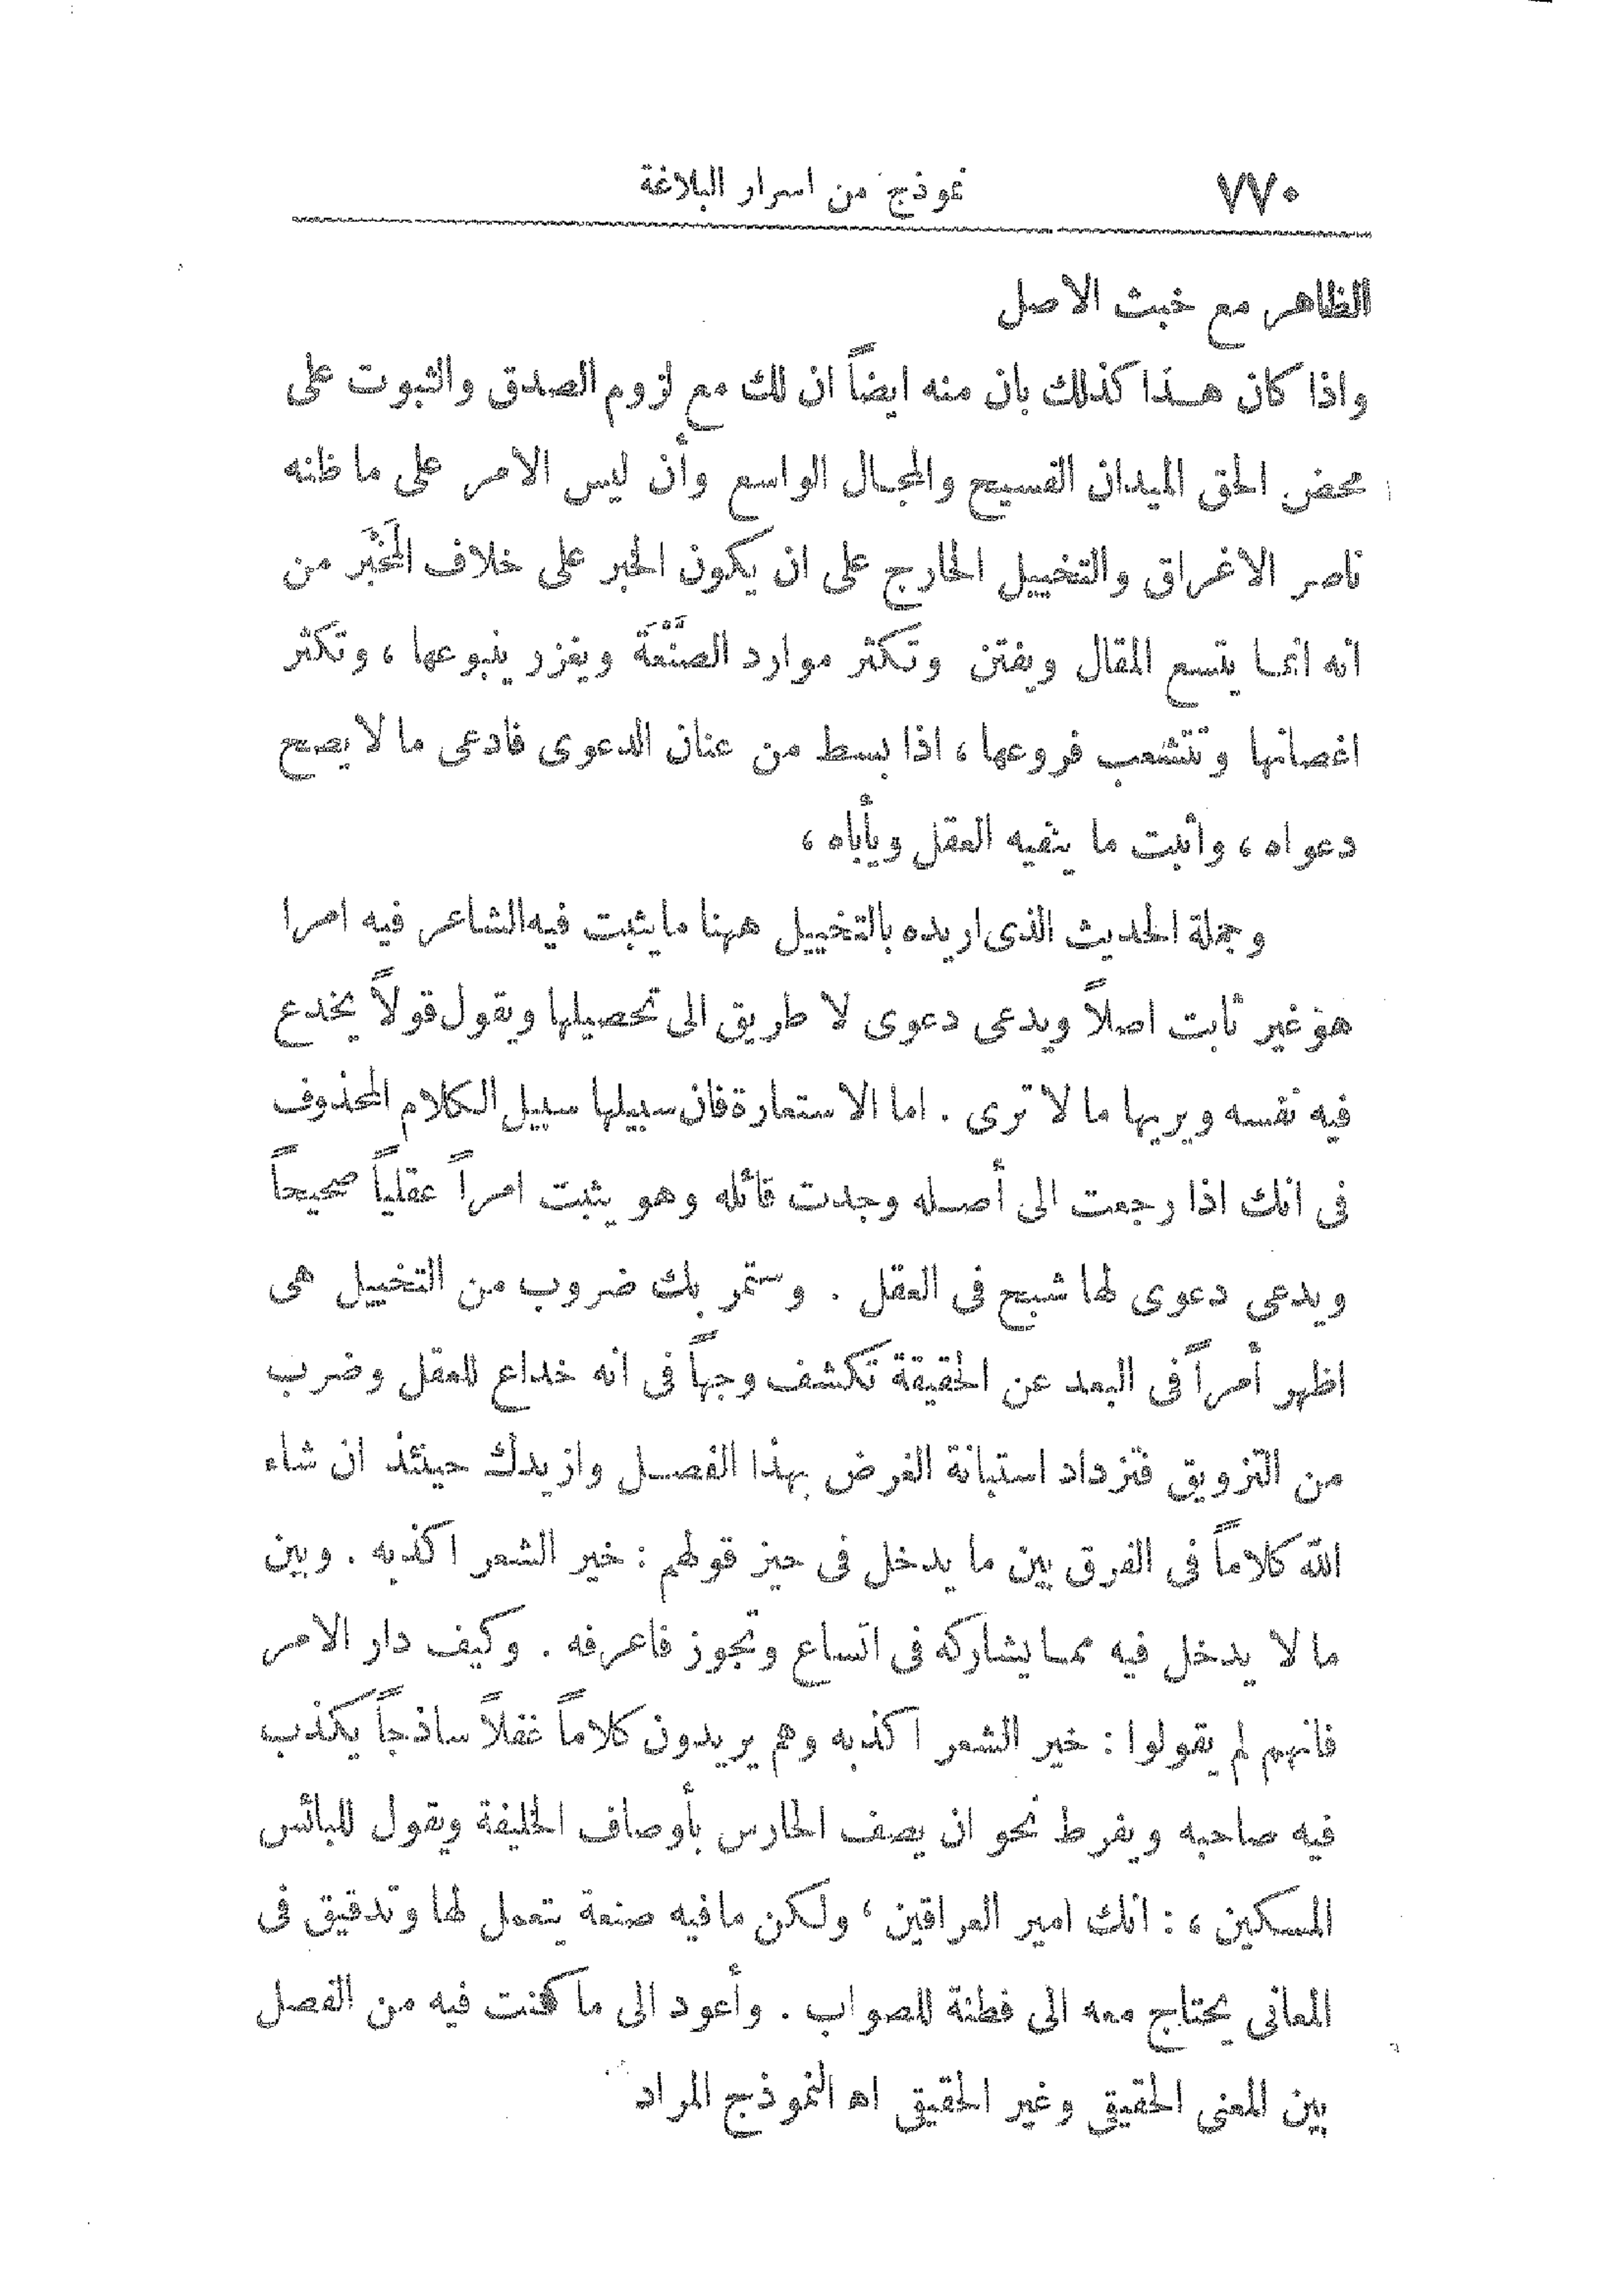 ٧٧٠ نموذج من اسرار البلاغة
الظاهر مع خبث الاصل
واذا كان هذا كذلك بان منه ايضاً ان لك مع لزوم الصدق والثبوت على
محض الحق الميدان الفسيح والمجال الواسع وأن ليس الامر على ما ظنه
ناصر الاغراق والتخييل الخارج على ان يكون الخبر على خلاف المَخْبَر من
انه انما يتسع المقال ويفتن وتكثر موارد الصَّنْعَة ويغزر ينبوعها ، وتكثر
اغصانها وتتشعب فروعها ، اذا بسط من عنان الدعوى فادعى ما لا يصح
دعواه ، واثبت ما ينفيه العقل ويأباه ،
وجملة الحديث الذى اريده بالتخييل ههنا ما يثبت فيه الشاعر فيه امرا
هو غير ثابت اصلاً ويدعى دعوى لا طريق الى تحصيلها ويقول قولاً يخدع
فيه نفسه ويريها ما لا ترى . اما الاستعارة فان سبيلها سبيل الكلام المحذوف
فى انك اذا رجعت الى أصله وجدت قائله وهو يثبت امراً عقلياً صحيحاً
ويدعى دعوى لها شبح فى العقل . وستمر بك ضروب من التخييل هى
اظهر أمراً فى البعد عن الحقيقة تكشف وجهاً فى انه خداع للعقل وضرب
من التزويق فتزداد استبانة الغرض بهذا الفصل وازيدك حينئذ ان شاء
الله كلاماً فى الفرق بين ما يدخل فى حيز قولهم : خير الشعر اكذبه . وبين
ما لا يدخل فيه مما يشاركه فى اتساع وتجوز فاعرفه . وكيف دار الامر
فانهم لم يقولوا : خير الشعر اكذبه وهم يريدون كلاماً غفلاً ساذجاً يكذب
فيه صاحبه ويفرط نحو ان يصف الحارس بأوصاف الخليفة ويقول للبائس
المسكين ، : انك امير العراقين ، ولكن ما فيه صنعة يتعمل لها وتدقيق فى
المعانى يحتاج معه الى فطنة للصواب . وأعود الى ما كنت فيه من الفصل
بين المعنى الحقيقى وغير الحقيقى اه النموذج المراد